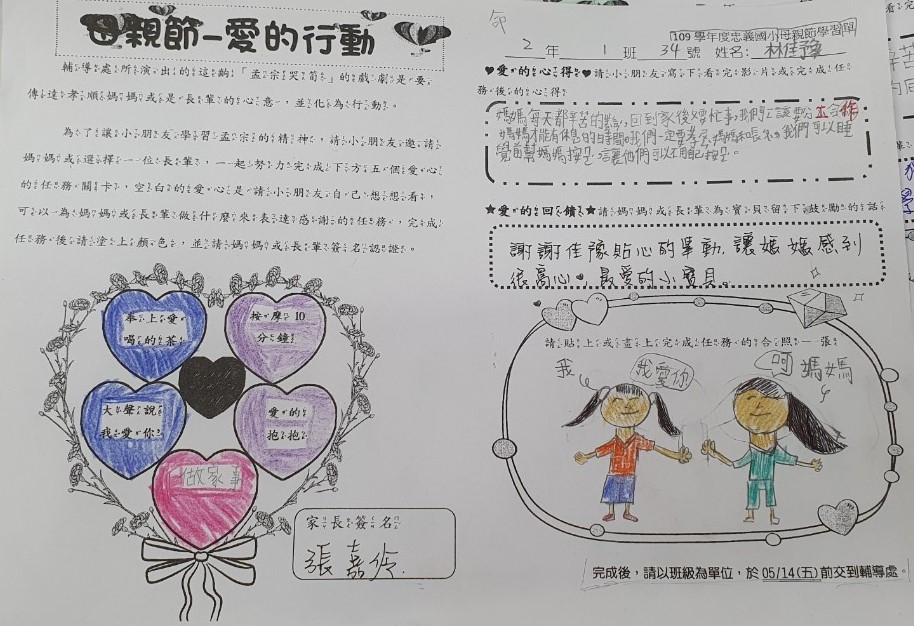 母親節-愛的行動
輔導處所演出的這齣「孟宗哭筍」的戲劇是要
傳達孝順媽媽或是長輩的心意，並化為行動。
為了讓小朋友學習孟宗的精神，請小朋友邀請
媽媽或選擇一位長輩，一起努力完成下方五個愛心
的任務關卡，空白的愛心是請小朋友自己想想看，
可以為媽媽或長輩做什麼來表達感謝的任務，完成
任務後請塗上顏色，並請媽媽或長輩簽名認證。
奉上愛
喝的茶
按摩10
分鐘
大聲說
我愛你
愛的
抱抱
做家事
家長簽名
張嘉
109學年度忠義國小母親節學習單
2年 1班 34號 姓名：林佳豫
♥愛的心得♥請小朋友寫下看完影片或完成任
務後的心得
媽媽每天都辛苦的
回到家後
忙家事，我們應該要分工合作
媽媽才能有休息的時間。我們一定要孝
我們可以睡
覺前幫媽媽按
★愛的回饋★請媽媽或長輩為寶貝留下鼓勵的話
謝謝佳豫貼心的舉動，讓媽媽感到
很高心，最愛的小寶貝。
請貼上或畫上完成任務的合照一張
我
我愛你
呵
媽媽
完成後，請以班級為單位，於05/14(五)前交到輔導處。